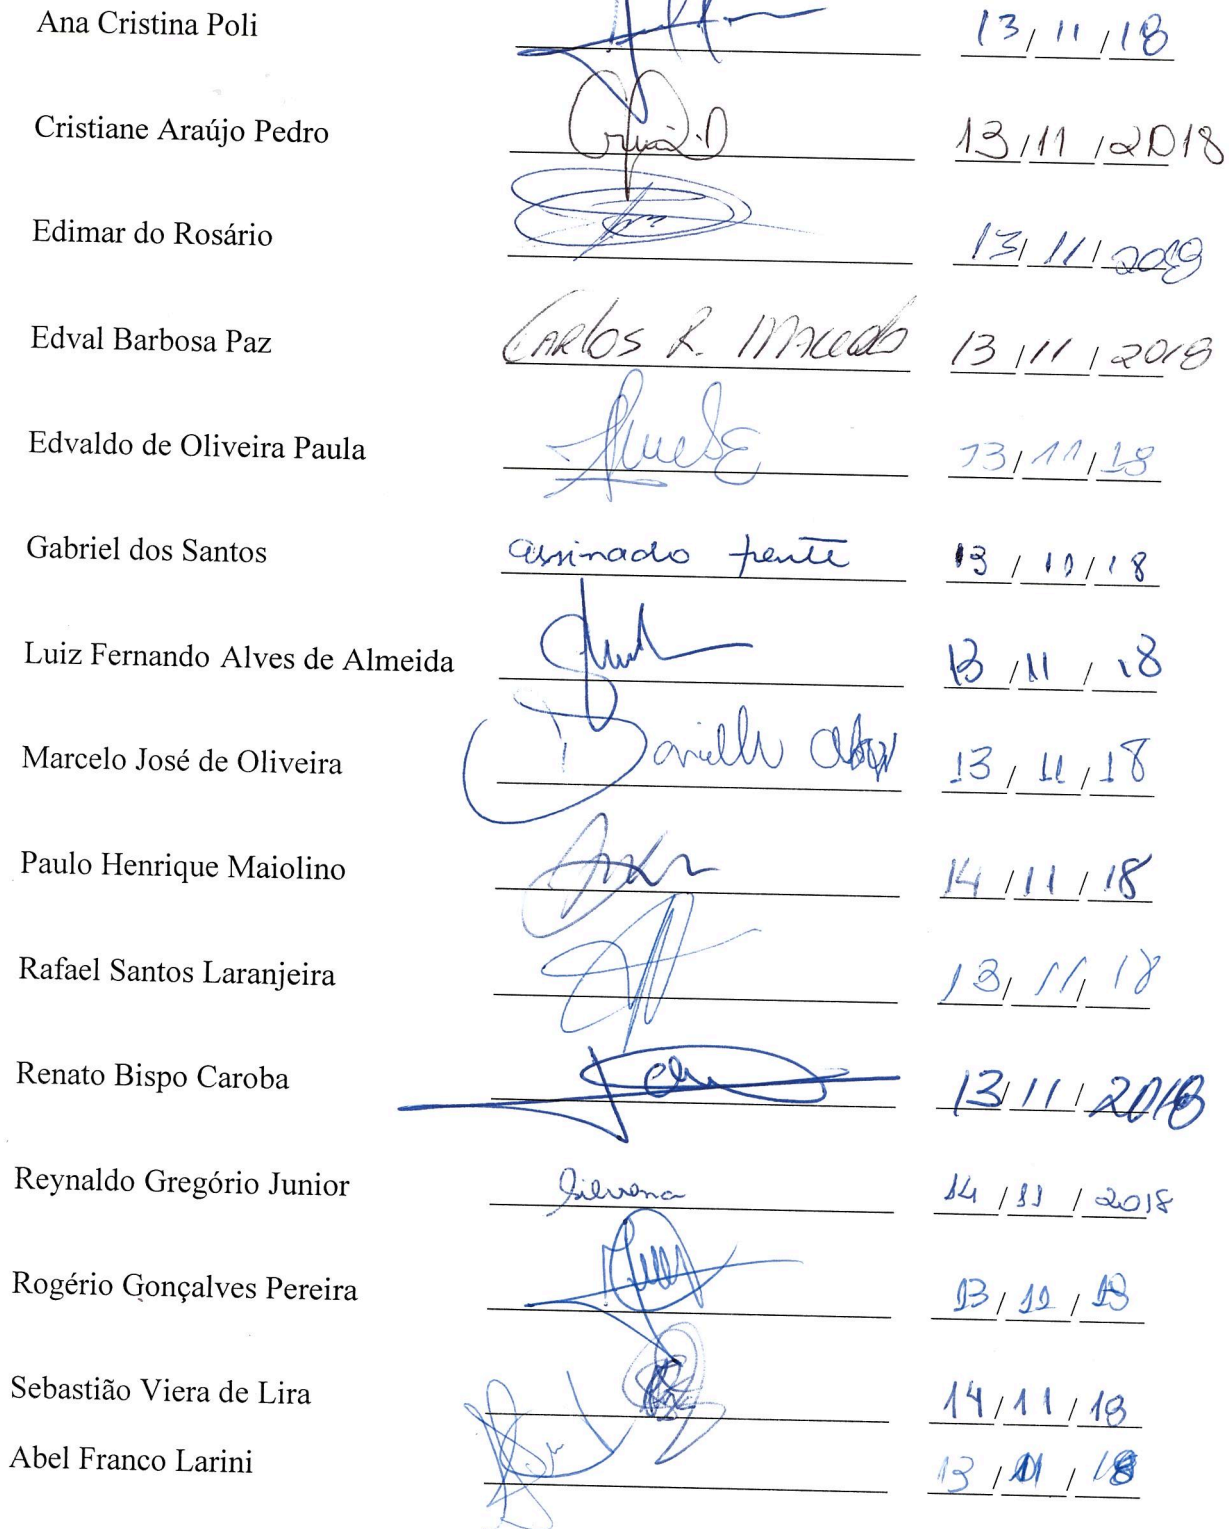 Ana Cristina Poli 13/11/18
Cristiane Araújo Pedro 13/11/2018
Edimar do Rosário 13/11/2018
Edval Barbosa Paz Carlos R. Macedo 13/11/2018
Edvaldo de Oliveira Paula 13/11/18
Gabriel dos Santos assinado frente 13/11/18
Luiz Fernando Alves de Almeida 13/11/18
Marcelo José de Oliveira 13/11/18
Paulo Henrique Maiolino 14/11/18
Rafael Santos Laranjeira 13/11/18
Renato Bispo Caroba 13/11/2018
Reynaldo Gregório Junior Silvana 14/11/2018
Rogério Gonçalves Pereira 13/11/18
Sebastião Viera de Lira 14/11/18
Abel Franco Larini 13/11/18